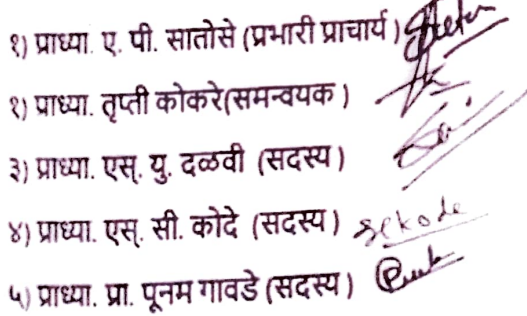 १) प्राध्या. ए. पी. सातोसे (प्रभारी प्राचार्य)
१) प्राध्या. तृप्ती कोकरे(समन्वयक )
३) प्राध्या. एस्. यु. दळवी (सदस्य )
४) प्राध्या. एस्. सी. कोदे (सदस्य ) sckode
५) प्राध्या. प्रा. पूनम गावडे (सदस्य )